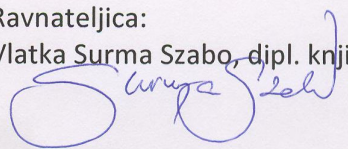 Ravnateljica:
Vlatka Surma Szabo, dipl. knji
Surma Szabo